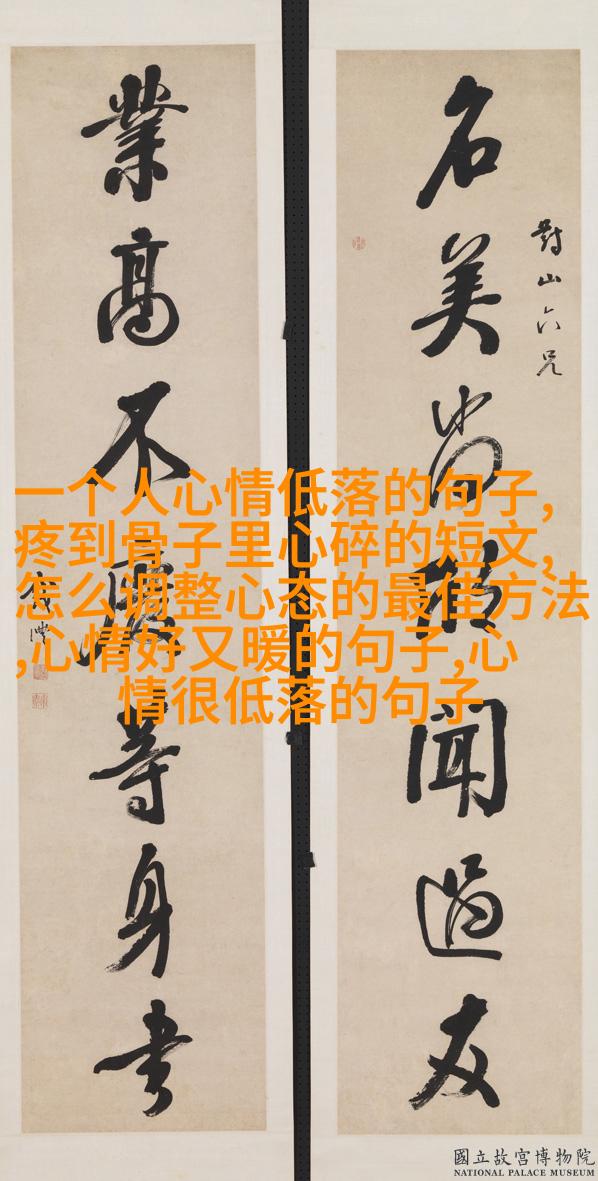 對山六兄
名美尚欣聞過友
業高不廢等身書
一个人心情低落的句子,
疼到骨子里心碎的短文,
怎么调整心态的最佳方法
,心情好又暖的句子,心
情很低落的句子
國立故宮博物院
NATIONAL PALACE MUSEUM